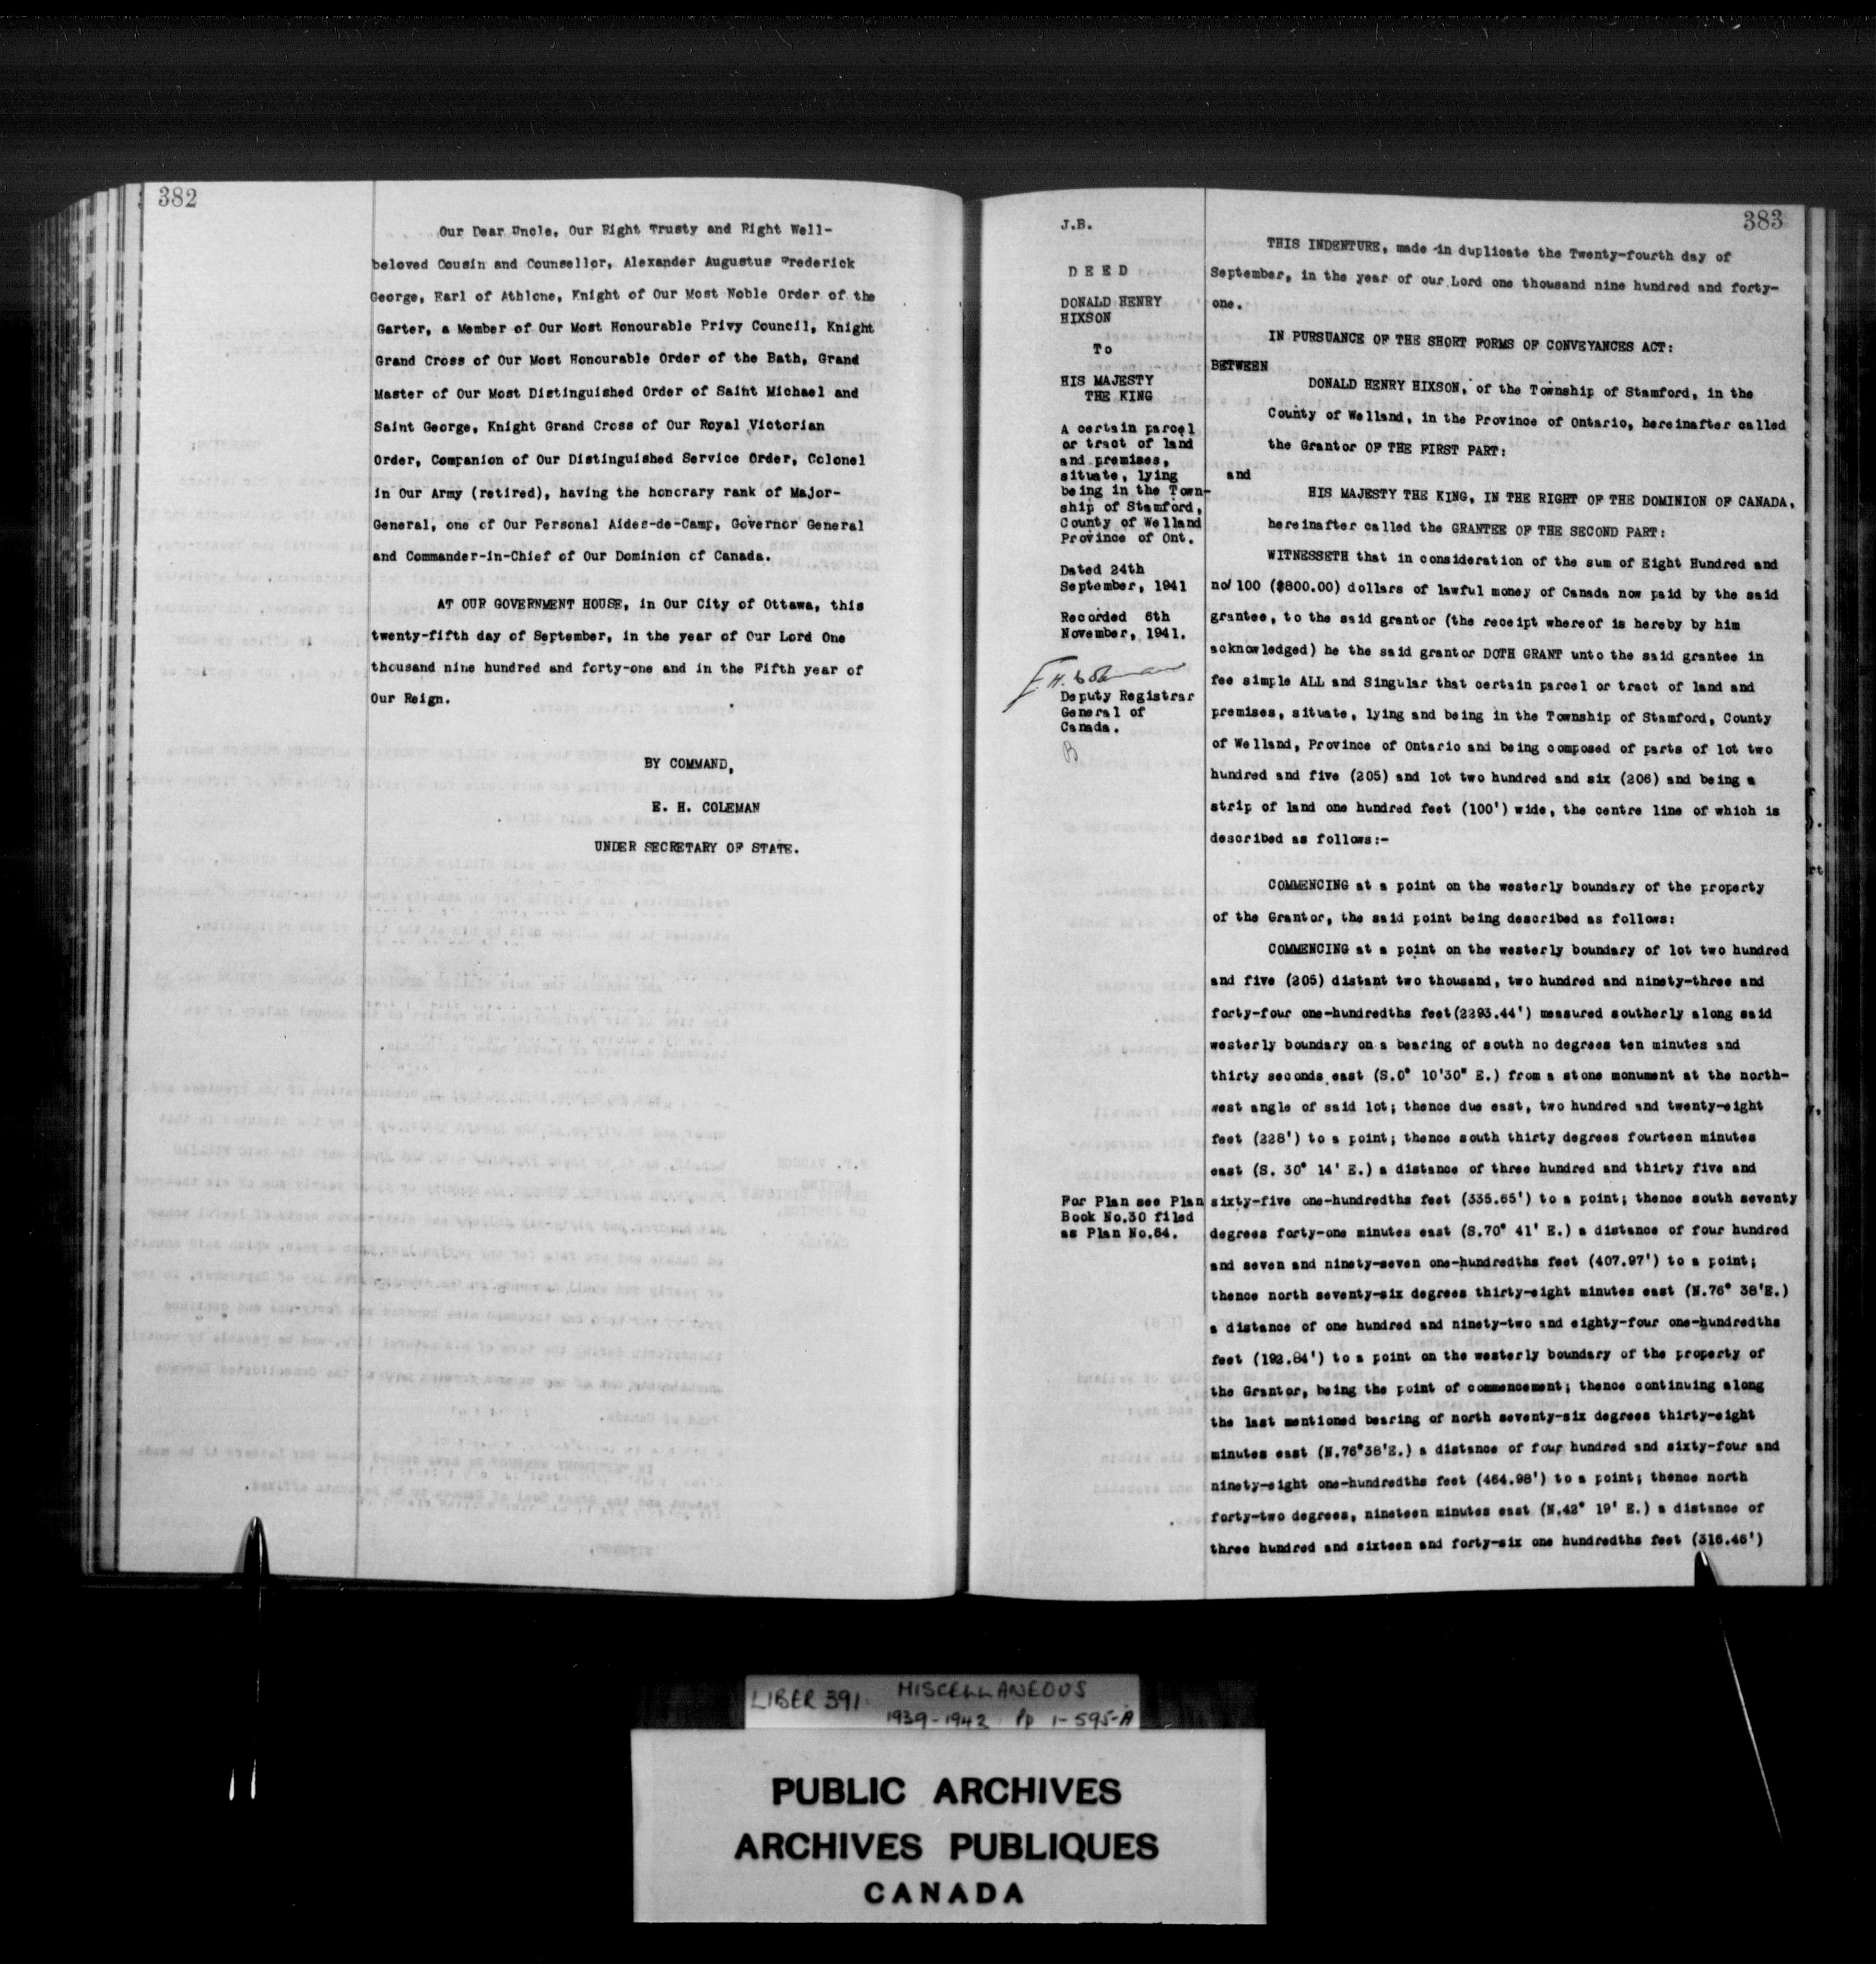 382
Our Dear Uncle, Our Right Trusty and Right Well-
beloved Cousin and Counsellor, Alexander Augustus Frederick
George, Earl of Athlone, Knight of Our Most Noble Order of the
Garter, a Member of Our Most Honourable Privy Council, Knight
Grand Cross of Our Most Honourable Order of the Bath, Grand
Master of Our Most Distinguished Order of Saint Michael and
Saint George, Knight Grand Cross of Our Royal Victorian
Order, Companion of Our Distinguished Service Order, Colonel
in Our Army (retired), having the honorary rank of Major-
General, one of Our Personal Aides-de-Camp, Governor General
and Commander-in-Chief of Our Dominion of Canada.
AT OUR GOVERNMENT HOUSE, in Our City of Ottawa, this
twenty-fifth day of September, in the year of Our Lord One
thousand nine hundred and forty-one and in the Fifth year of
Our Reign.
BY COMMAND,
E. H. COLEMAN
UNDER SECRETARY OF STATE.
383
J.B.
DEED
DONALD HENRY
HIXSON
To
HIS MAJESTY
THE KING
A certain parcel
or tract of land
and premises,
situate, lying
being in the Town-
ship of Stamford,
County of Welland
Province of Ont.
Dated 24th
September, 1941
Recorded 6th
November, 1941.
E. H. Coleman
Deputy Registrar
General of
Canada.
B
For Plan see Plan
Book No.30 filed
as Plan No.64.
THIS INDENTURE, made in duplicate the Twenty-fourth day of
September, in the year of our Lord one thousand nine hundred and forty-
one.
IN PURSUANCE OF THE SHORT FORMS OF CONVEYANCES ACT:
BETWEEN
DONALD HENRY HIXSON, of the Township of Stamford, in the
County of Welland, in the Province of Ontario, hereinafter called
the Grantor OF THE FIRST PART:
and
HIS MAJESTY THE KING, IN THE RIGHT OF THE DOMINION OF CANADA,
hereinafter called the GRANTEE OF THE SECOND PART:
WITNESSETH that in consideration of the sum of Eight Hundred and
no/100 ($800.00) dollars of lawful money of Canada now paid by the said
grantee, to the said grantor (the receipt whereof is hereby by him
acknowledged) he the said grantor DOTH GRANT unto the said grantee in
fee simple ALL and Singular that certain parcel or tract of land and
premises, situate, lying and being in the Township of Stamford, County
of Welland, Province of Ontario and being composed of parts of lot two
hundred and five (205) and lot two hundred and six (206) and being a
strip of land one hundred feet (100') wide, the centre line of which is
described as follows:-
COMMENCING at a point on the westerly boundary of the property
of the Grantor, the said point being described as follows:
COMMENCING at a point on the westerly boundary of lot two hundred
and five (205) distant two thousand, two hundred and ninety-three and
forty-four one-hundredths feet(2293.44') measured southerly along said
westerly boundary on a bearing of south no degrees ten minutes and
thirty seconds east (S.0° 10'30" E.) from a stone monument at the north-
west angle of said lot; thence due east, two hundred and twenty-eight
feet (228') to a point; thence south thirty degrees fourteen minutes
east (S. 30° 14' E.) a distance of three hundred and thirty five and
sixty-five one-hundredths feet (335.65') to a point; thence south seventy
degrees forty-one minutes east (S.70° 41' E.) a distance of four hundred
and seven and ninety-seven one-hundredths feet (407.97') to a point;
thence north seventy-six degrees thirty-eight minutes east (N.76° 38'E.)
a distance of one hundred and ninety-two and eighty-four one-hundredths
feet (192.84') to a point on the westerly boundary of the property of
the Grantor, being the point of commencement; thence continuing along
the last mentioned bearing of north seventy-six degrees thirty-eight
minutes east (N.76°38'E.) a distance of four hundred and sixty-four and
ninety-eight one-hundredths feet (464.98') to a point; thence north
forty-two degrees, nineteen minutes east (N.42° 19' E.) a distance of
three hundred and sixteen and forty-six one hundredths feet (316.46')
LIBER 391 MISCELLANEOUS
1939-1942 Pp 1-595-A
PUBLIC ARCHIVES
ARCHIVES PUBLIQUES
CANADA